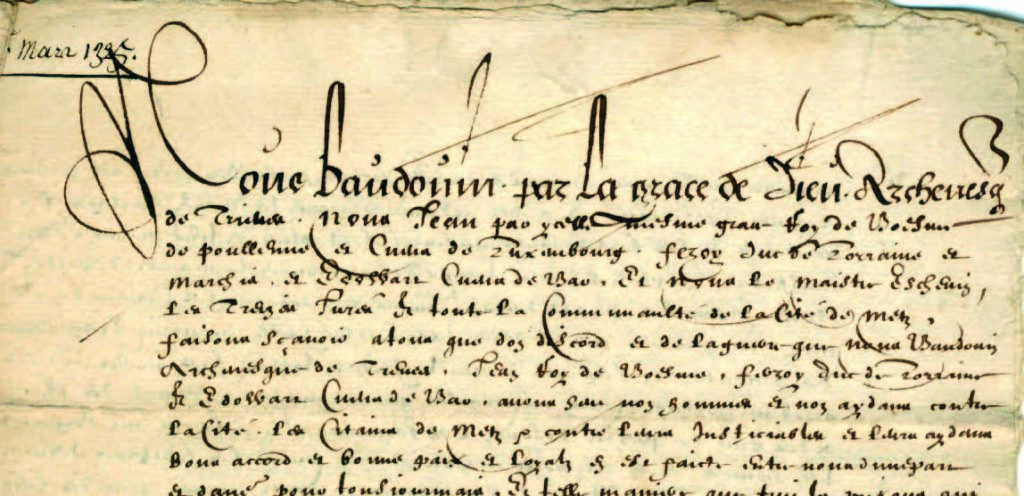 Mars 1325.
Nous Baudouin. par La grace de Dieu. Archevesq
de Trieves. Nous Jean par ycelle mesme grace Roy de Boesme
de poullenne et Cuens de Luxembourg. ferry duc de Lorraine et
marchis, et Edowart Cuens de Bar. Et nous le maistre Eschevin,
Les Treizes Jures Et toute La Communaulté de La Cité de Metz,
faisons sçavoir a tous que dou discord et de la guerre que nous Baudouin
Archevesque de Treves. Jean Roy de Boesme, ferry Duc de Lorraine
Et Edowart Cuens de Bar, avons heu nos hommes et nos aydans contre
La Cité. Les Citains de Metz contre leurs Justiciables et leurs aydans
bons accord et bonne paix et Loyals est faicte entre nous d'unepart
et pour tousjourmais, Et telle maniere que